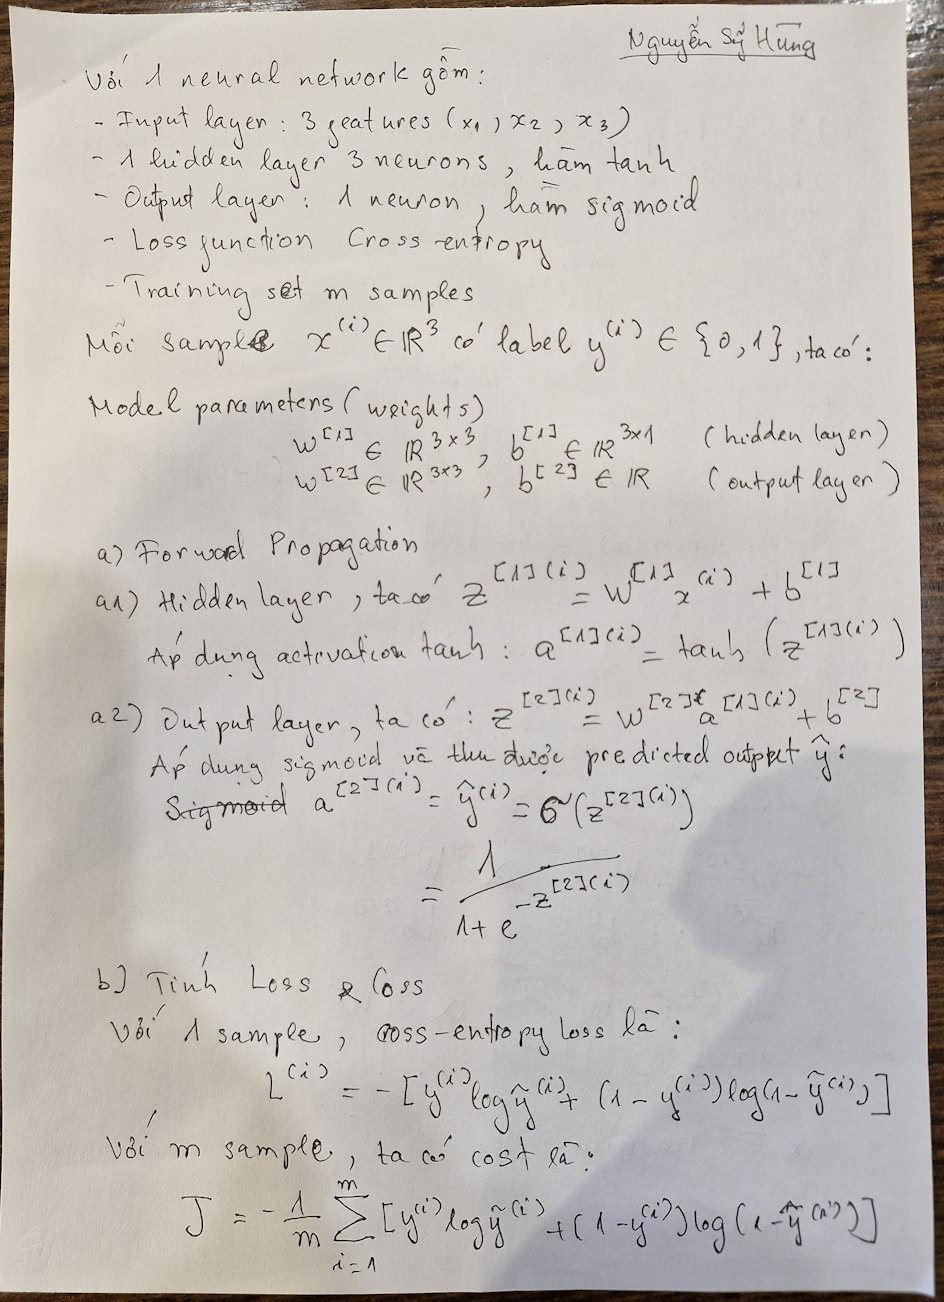 Nguyễn Sỹ Hùng
Với 1 neural network gồm:
- Input layer: 3 features (x₁, x₂, x₃)
- 1 hidden layer 3 neurons, hàm tanh
- Output layer: 1 neuron, hàm sigmoid
- Loss function Cross-entropy
- Training set m samples
Mỗi sample x⁽ⁱ⁾ ∈ ℝ³ có label y⁽ⁱ⁾ ∈ {0,1}, ta có:
Model parameters (weights)
W^[1] ∈ ℝ^3x3, b^[1] ∈ ℝ^3x1 (hidden layer)
W^[2] ∈ ℝ^3x3, b^[2] ∈ ℝ (output layer)
a) Forward Propagation
a1) Hidden layer, ta có z^[1](i) = W^[1] x^(i) + b^[1]
Áp dụng activation tanh: a^[1](i) = tanh (z^[1](i))
a2) Output layer, ta có: z^[2](i) = W^[2] a^[1](i) + b^[2]
Áp dụng sigmoid và thu được predicted output ŷ:
Sigmoid a^[2](i) = ŷ^(i) = σ(z^[2](i))
= 1 / (1 + e^(-z^[2](i)))
b) Tính Loss & Coss
Với 1 sample, coss-entropy loss là:
L^(i) = -[y^(i) log ŷ^(i) + (1 - y^(i)) log(1 - ŷ^(i))]
Với m sample, ta có cost là:
J = -1/m ∑_{i=1}^{m} [y^(i) log ŷ^(i) + (1 - y^(i)) log (1 - ŷ^(i))]